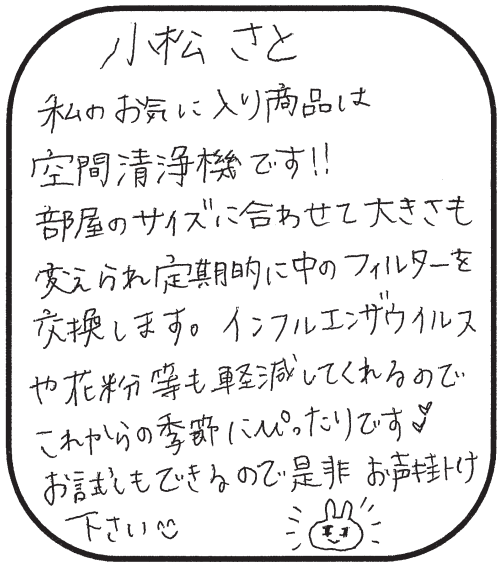 小松 さと
私のお気に入り商品は
空間清浄機です!!
部屋のサイズに合わせて大きさも
変えられ定期的に中のフィルターを
交換します。インフルエンザウイルス
や花粉等も軽減してくれるので
これからの季節にぴったりです
お試しもできるので是非 お声掛け
下さい